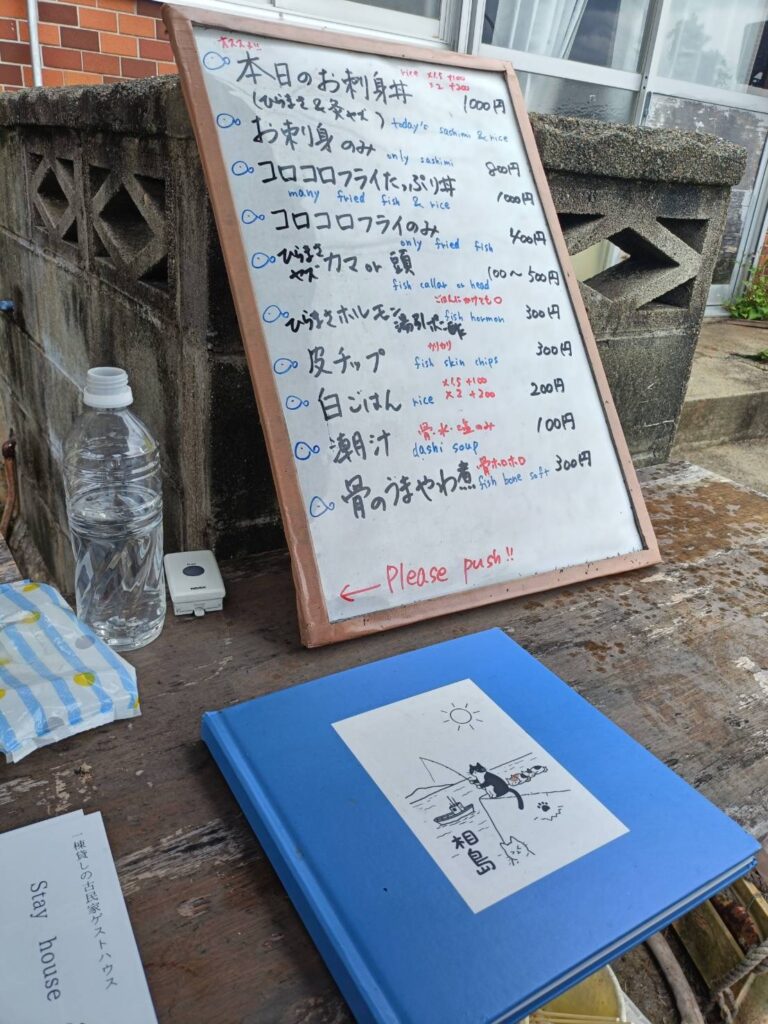 オススメ!!
本日のお刺身丼 rice ×1.5 +100 ×2 +200 1000円
(ひらまさ&炙やズ) today's sashimi & rice
お刺身のみ only sashimi 800円
コロコロフライたっぷり丼 1000円
many fried fish & rice
コロコロフライのみ 400円
only fried fish
ひらまさ ヤズ カマ or 頭 100〜500円
fish collar or head
ごはんにかけても○
ひらまさホルモン 湯引ポン酢 fish hormon 300円
カリカリ
皮チップ fish skin chips 300円
白ごはん rice ×1.5 +100 ×2 +200 200円
骨・水・塩のみ
潮汁 dashi soup 100円
骨のうまやわ煮 骨ホロホロ fish bone soft 300円
← Please push!!
相島
一棟貸しの古民家ゲストハウス
Stay house